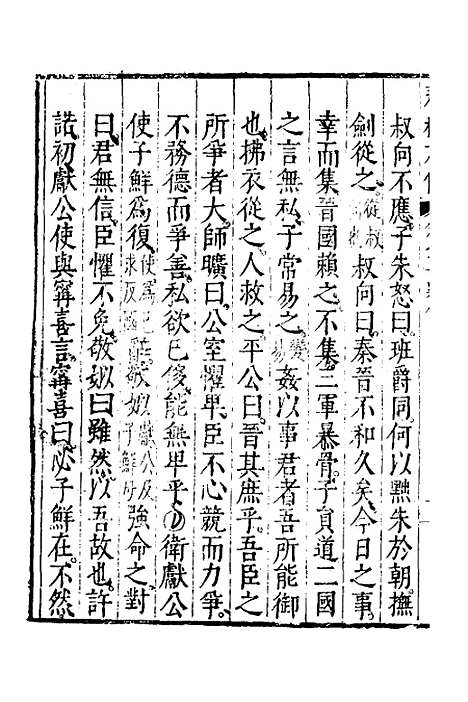 叔向不應。子朱怒曰。班爵同。何以黜朱於朝。撫
劍從之。從叔向叔向曰。秦晉不和久矣。今日之事。
幸而集。晉國賴之。不集。三軍暴骨。子員道二國
之言無私。子常易之。變易姦以事君者。吾所能御
也。拂衣從之。人救之。平公曰。晉其庶乎。吾臣之
所爭者大。師曠曰。公室懼卑。臣不心競而力爭。
不務德而爭善。私欲已侈。能無卑乎。○衛獻公
使子鮮為復。使為己求反國辭。敬姒獻公及子鮮母強命之。對
曰。君無信。臣懼不免。敬姒曰。雖然。以吾故也。許
諾。初獻公使與甯喜言。甯喜曰。必子鮮在。不然